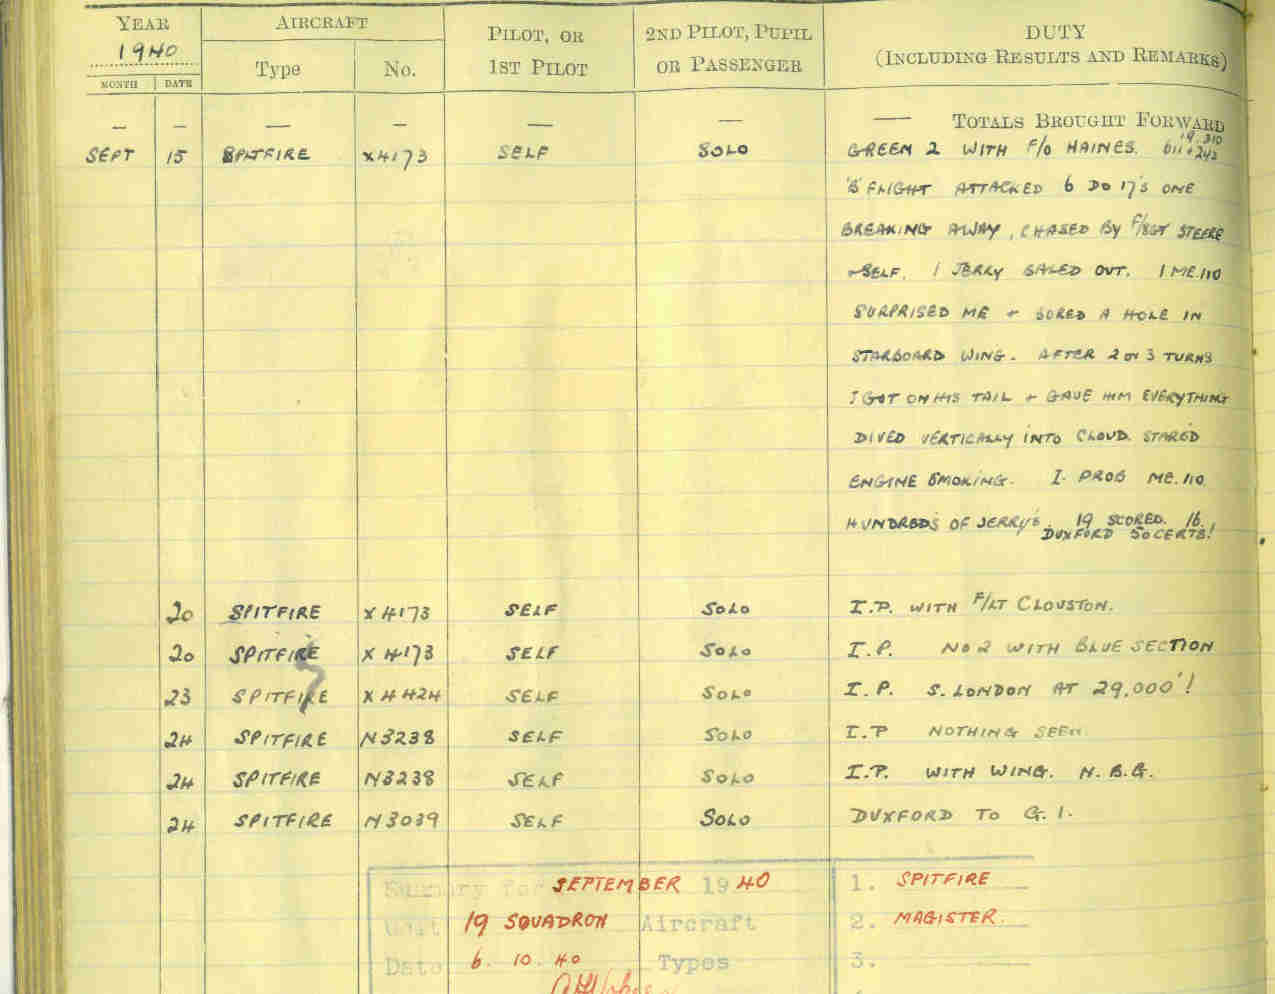 YEAR AIRCRAFT PILOT, OR 2ND PILOT, PUPIL DUTY
1940 Type No. 1ST PILOT OR PASSENGER (INCLUDING RESULTS AND REMARKS)
MONTH DATE
— — — — — — — TOTALS BROUGHT FORWARD
19. 310
SEPT 15 SPITFIRE X4173 SELF SOLO GREEN 2 WITH F/O HAINES. 611 + 242
'B' FLIGHT ATTACKED 6 DO 17'S ONE
BREAKING AWAY, CHASED BY F/SGT STEERE
+ SELF. 1 JERRY BALED OUT. 1 ME.110
SURPRISED ME + BORED A HOLE IN
STARBOARD WING. AFTER 2 OR 3 TURNS
I GOT ON HIS TAIL + GAVE HIM EVERYTHING
DIVED VERTICALLY INTO CLOUD. STAR'D
ENGINE SMOKING. I. PROB ME.110.
HUNDREDS OF JERRY'S. 19 SCORED. 16.
DUXFORD 50 CERTS!
20 SPITFIRE X4173 SELF SOLO I.P. WITH F/LT CLOUSTON.
20 SPITFIRE X4173 SELF SOLO I.P. NO 2 WITH BLUE SECTION
23 SPITFIRE X4424 SELF SOLO I.P. S. LONDON AT 29,000'!
24 SPITFIRE N3238 SELF SOLO I.P NOTHING SEEN
24 SPITFIRE N3238 SELF SOLO I.P. WITH WING. N.B.G.
24 SPITFIRE N3039 SELF SOLO DUXFORD TO G.1.
Summary for SEPTEMBER 1940 1. SPITFIRE
Unit 19 SQUADRON Aircraft 2. MAGISTER.
Date 6.10.40 Types 3.